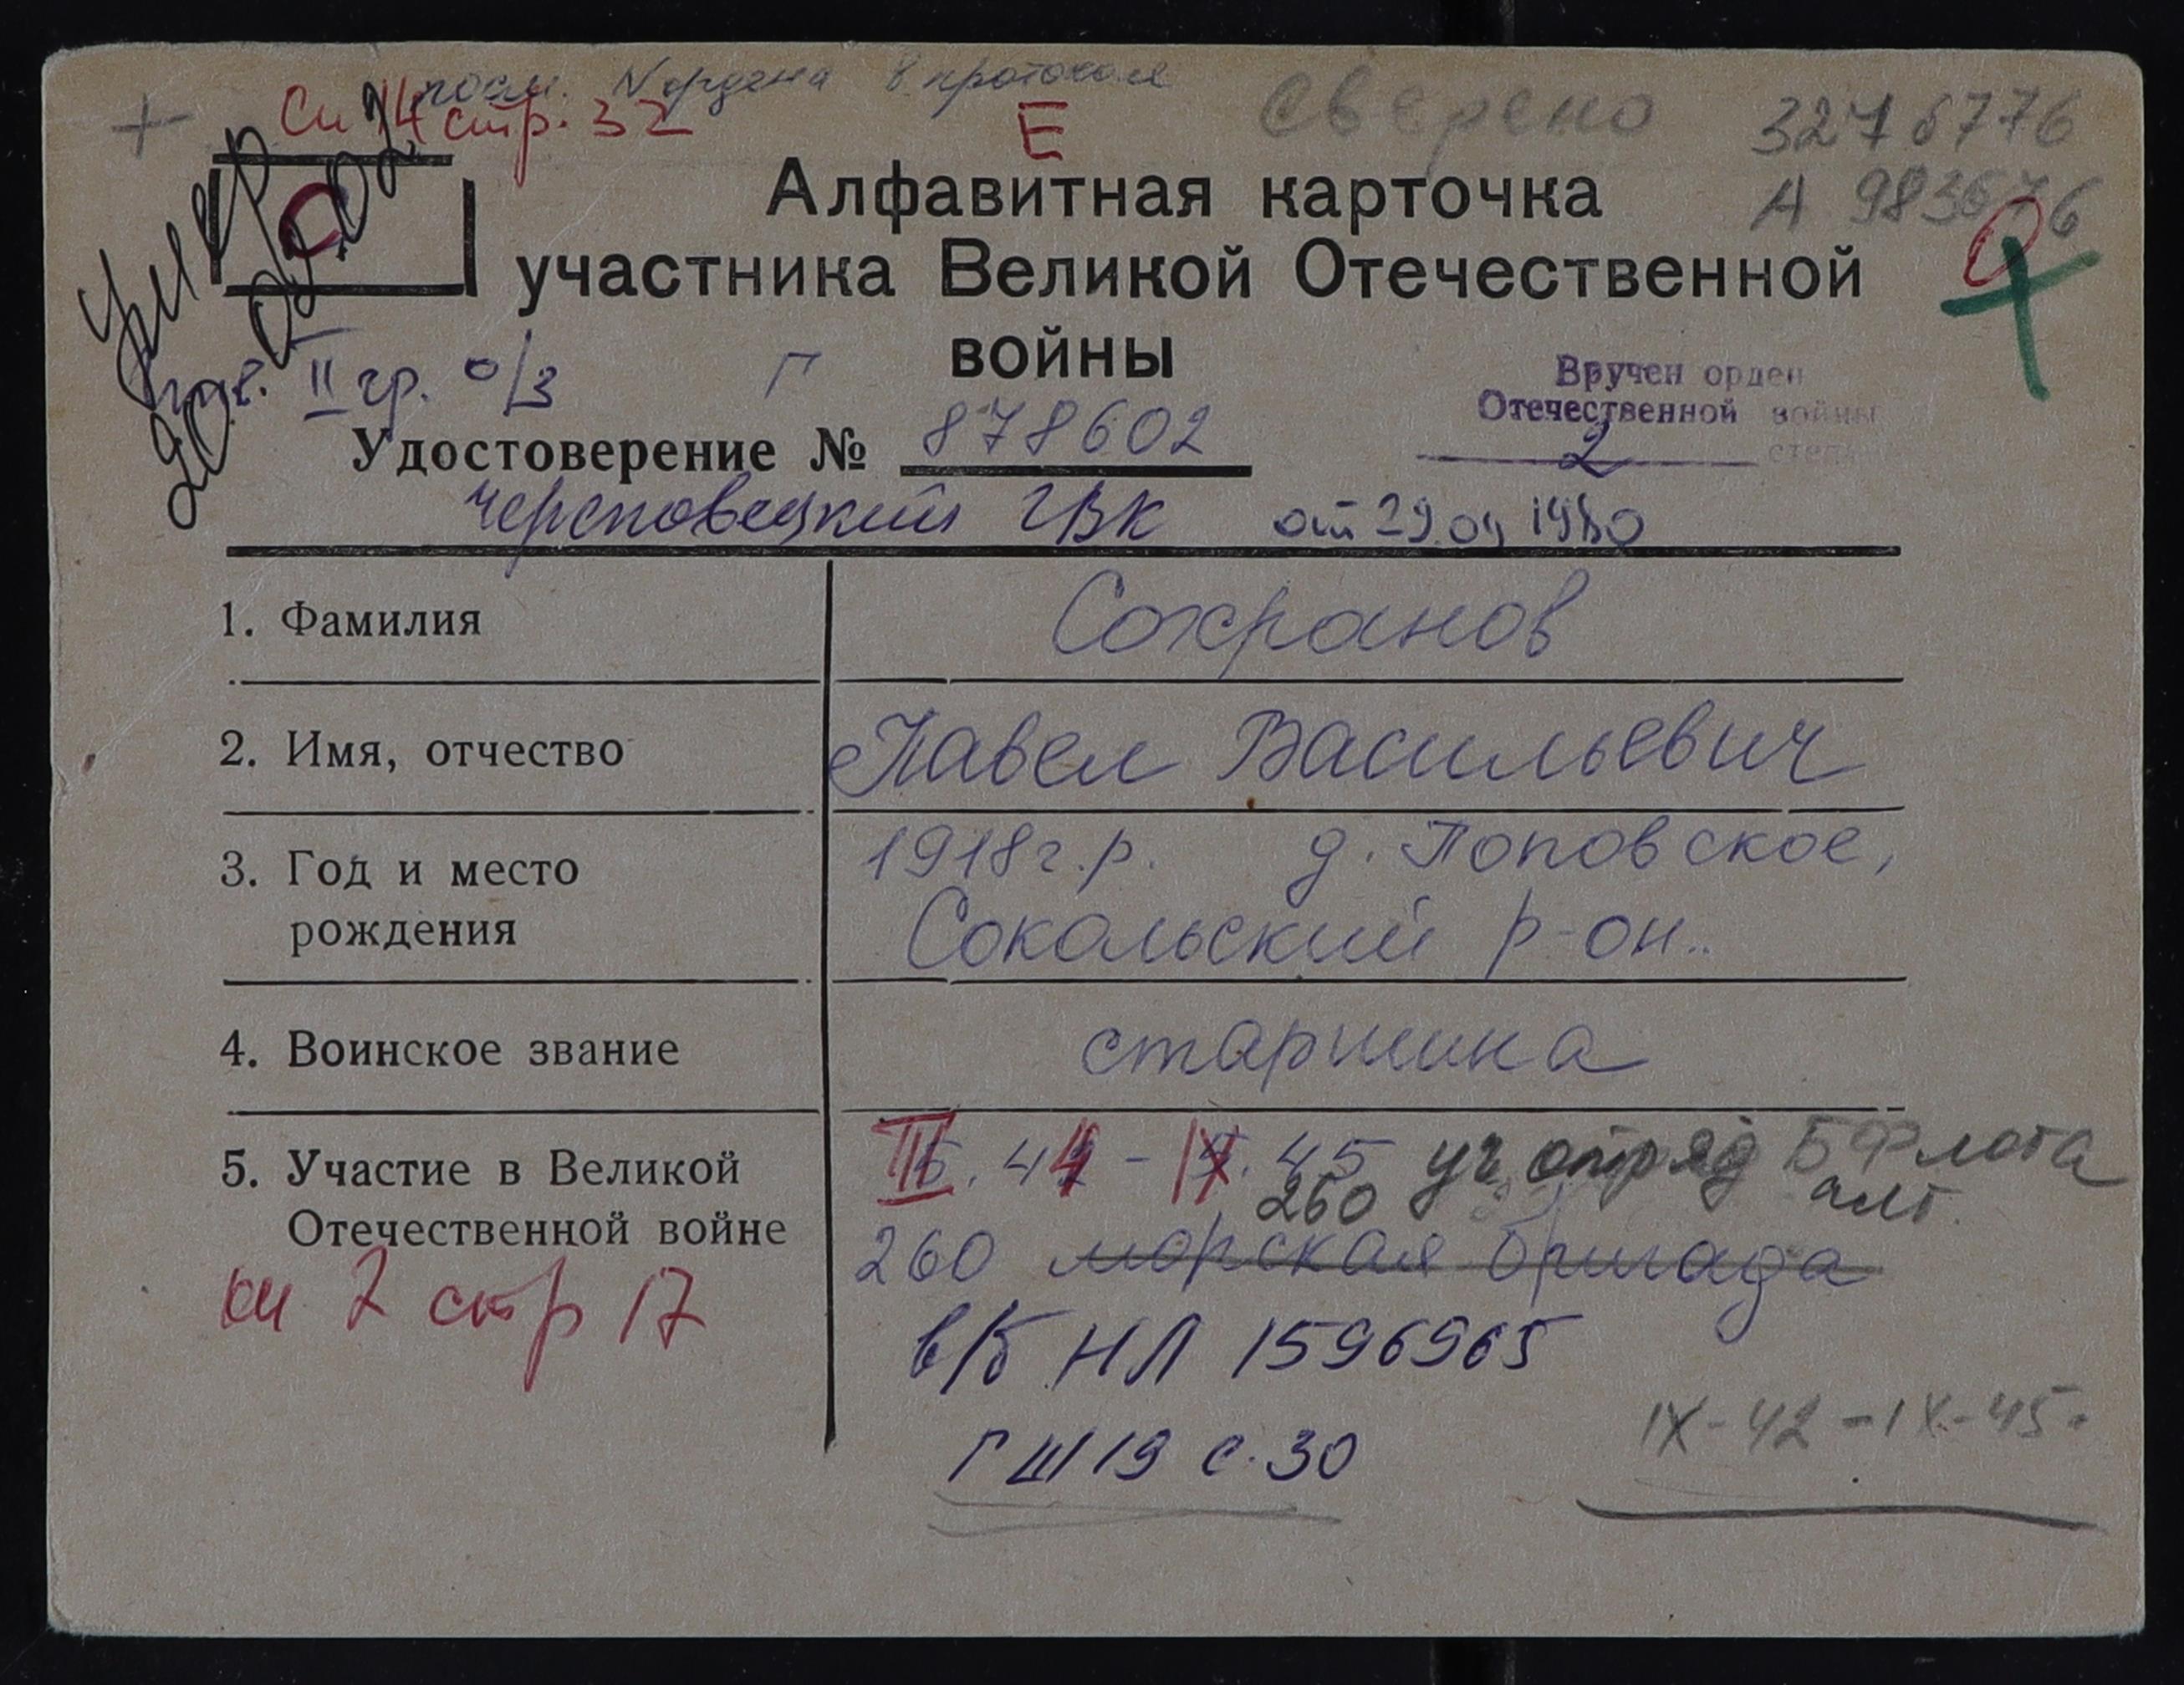 посм. № ордена в протоколе
Сп 14 стр. 32
Е
Сверено
3276776
А 983676
С
Алфавитная карточка
участника Великой Отечественной
войны
умер
20. 01. 02 г.
инв. II гр. о/з
Г
Вручен орден
Отечественной войны
2 степ
Удостоверение № 878602
Череповецкий ГВК от 29.09 1980
1. Фамилия Сохранов
2. Имя, отчество Павел Васильевич
3. Год и место 1918 г.р. д. Поповское,
рождения Сокольский р-он..
4. Воинское звание старшина
5. Участие в Великой III. 44 - IX. 45 уч. отряд Б Флота
Отечественной войне 260
260 морская бригада
сп 2 стр 17
в/б НЛ 1596965
ГШ 19 с. 30
IX-42-IX-45.